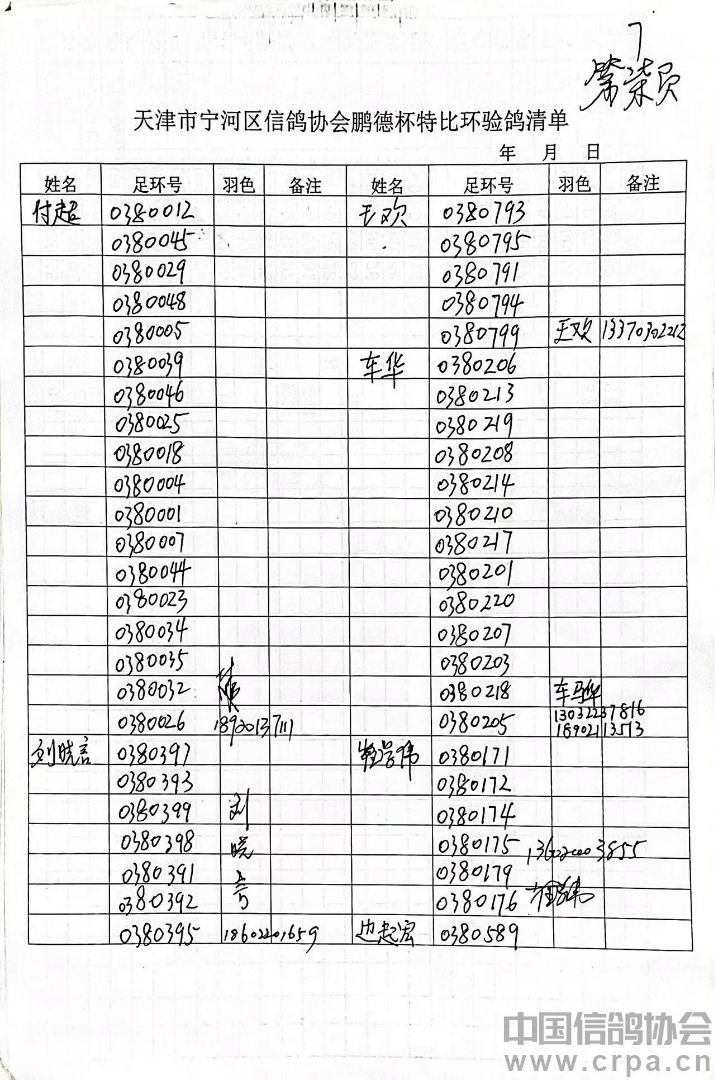 7
第柒页
天津市宁河区信鸽协会鹏德杯特比环验鸽清单
年 月 日
姓名 足环号 羽色 备注 姓名 足环号 羽色 备注
付超 0380012 王欢 0380793
0380045 0380795
0380029 0380791
0380048 0380794
0380005 0380799 王欢 13370302212
0380039 车华 0380206
0380046 0380213
0380025 0380219
0380018 0380208
0380004 0380214
0380001 0380210
0380007 0380217
0380044 0380201
0380023 0380220
0380034 0380207
0380035 0380203
0380032 0380218
0380026 18920137111 0380205 13032237816
18902113513
刘晓言 0380397 0380171
0380393 0380172
0380399 刘 0380174
0380398 晓 0380175
0380391 言 0380179
0380392 0380176
0380395 18602201659 边起宏 0380589
中国信鸽协会
www.crpa.cn